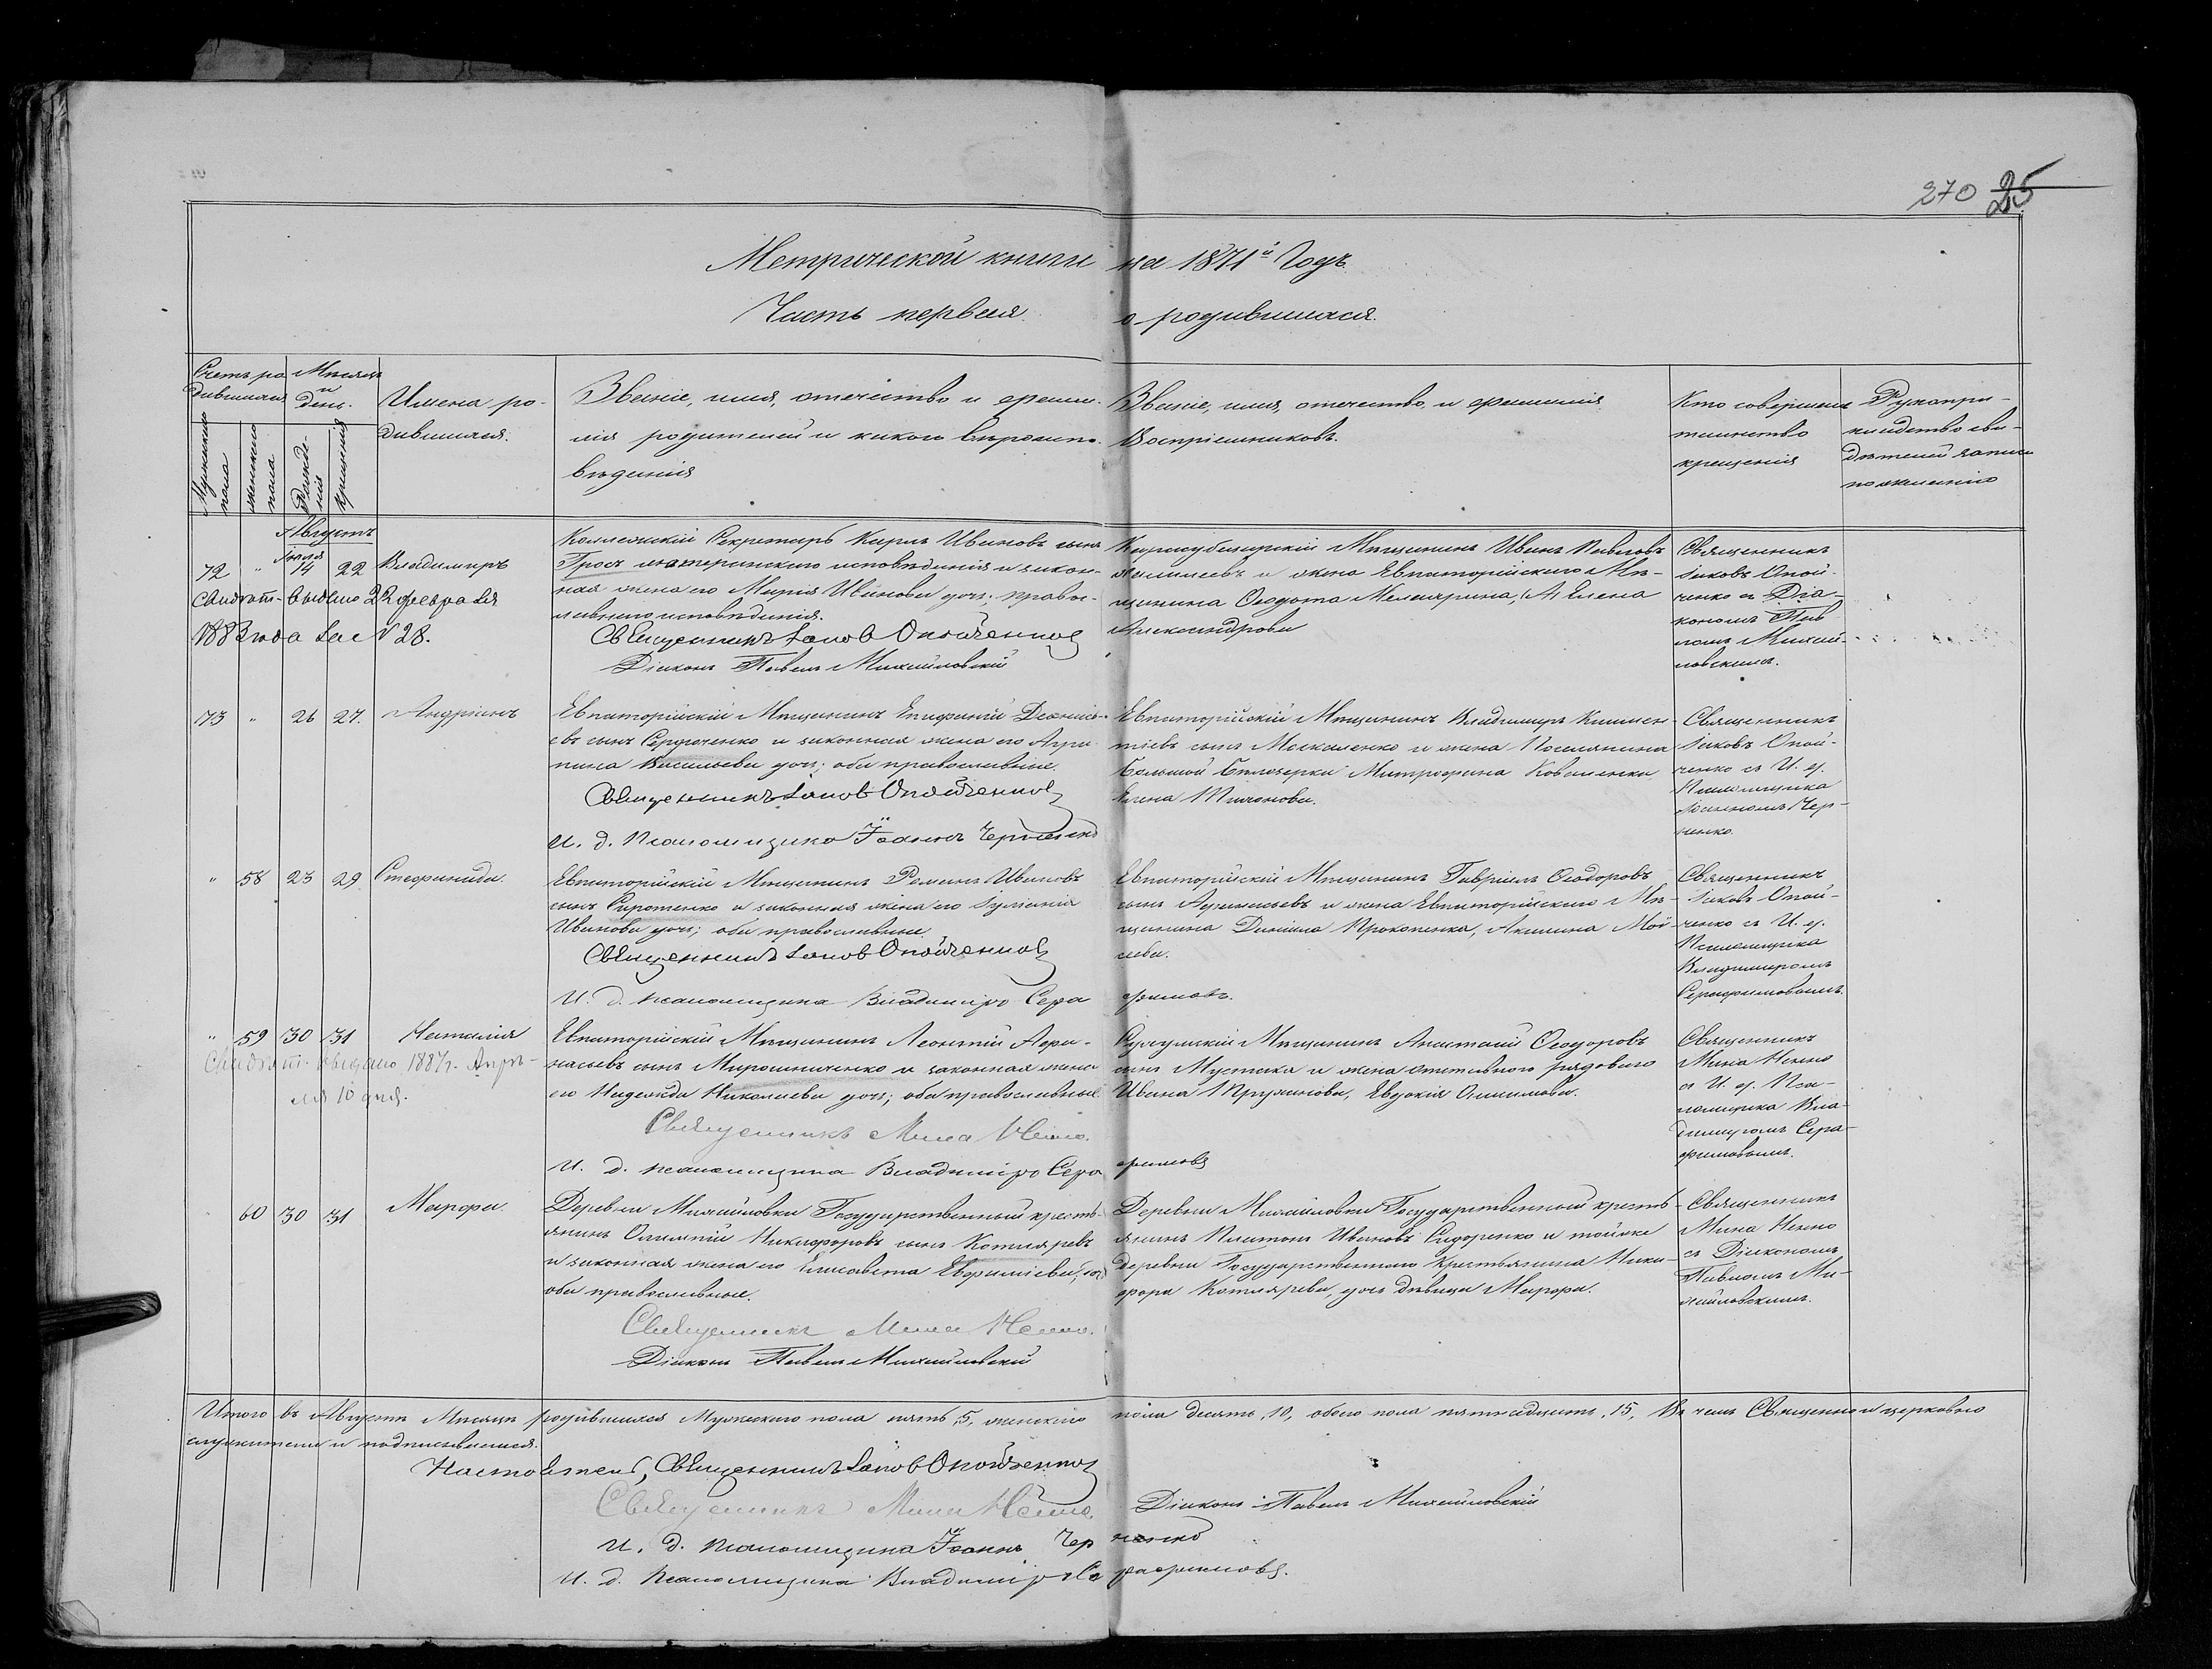 270 25
Метрической книги на 1871й Годъ
Часть первая о родившихся.
Счетъ ро
дившихся
Мужескаго
пола
женскаго
пола
Мѣсяцъ
и
День.
Рожде-
нія
Крещенія
Имена ро-
дившихся.
Званіе, имя, отечество и фами-
лія родителей и какого вѣроиспо-
вѣданія
Званіе, имя, отечество и фамилія
Воспріемниковъ.
Кто совершалъ
таинство
крещенія
Рукопри-
кладство сви-
дѣтелей записи
по желанію
Августъ
72 " Іюля 14 22 Владимиръ
Свидѣт. выдано 22 февраля
1883 года за № 28.
Коллежскій Секретарь Карлъ Ивановъ сынъ
Гросъ лютеранскаго исповѣданія и закон-
ная жена его Марія Иванова дочь; правос-
лавнаго исповѣданія.
Священникъ Іаковъ Опойченко
Діаконъ Павелъ Михайловскій
Карасубазарскій Мѣщанинъ Иванъ Павловъ
и жена Евпаторійскаго Мѣ-
щанина Ѳеодота Елена
Александрова
Священникъ
Іаковъ Опой-
ченко съ Діа-
кономъ Пав
ломъ Михай-
ловскимъ.
73 " 26 27. Андріанъ
Евпаторійскій Мѣщанинъ Епифаній Деонисі-
евъ сынъ Сердюченко и законная жена его Агри-
пина Васильева дочь; оба православные.
Священникъ Іаковъ Опойченко
И. д. Псаломщика Іоаннъ Черненко
Евпаторійскій Мѣщанинъ Владимиръ Климен-
тіевъ сынъ Москаленко и жена Поселянина
Большой Бѣлозерки Митрофана Коваленка
Елена Тихонова.
Священникъ
Іаковъ Опой-
ченко съ И. д.
Псаломщика
Іоанномъ Чер-
ненко.
" 58 23 29 Стефанида.
Евпаторійскій Мѣщанинъ Романъ Ивановъ
сынъ Сиротенко и законная жена его Іуліанія
Иванова дочь; оба православные
Священникъ Іаковъ Опойченко
И. д. псаломщика Владиміръ Серафимовъ.
Евпаторійскій Мѣщанинъ Гавріилъ Ѳеодоровъ
сынъ и жена Евпаторійскаго Мѣ-
щанина Даніила Прокопенка, Акилина Мои-
сеева.
Священникъ
Іаковъ Опой-
ченко съ И. д.
Псаломщика
Владимиромъ
Серафимовымъ.
" 59 30 31 Наталія
Свидѣт. выдано 1887 г. Апрѣ-
ля 10 дня.
Евпаторійскій Мѣщанинъ Леонтій Афа-
насьевъ сынъ Мирошниченко и законная жена
его Надежда Николаева дочь; оба православные
Священникъ Мина Ненно.
И. д. псаломщика Владиміръ Серафимовъ
Мѣщанинъ Анастасій Ѳеодоровъ
сынъ Мустака и жена отставного рядового
Ивана Пружинова, Евдокія Онисимова.
Священникъ
Мина Ненно
съ И. д. Пса-
ломщика Вла-
димиромъ Сера-
фимовымъ.
60 30 31 Марфа.
Деревни Михайловки Государственный кресть-
янинъ Олимпій Никифоровъ сынъ Котляревъ
и законная жена его Елисавета Евфиміева дочь
оба православные.
Священникъ Мина Ненно.
Діаконъ Павелъ Михайловскій
Деревни Михайловки Государственный кресть-
янинъ Платонъ Ивановъ Сидоренко и тойже
деревни Государственнаго Крестьянина Ники-
фора Котлярева, дочь дѣвица Марфа.
Священникъ
Мина Ненно
съ Діакономъ
Павломъ Ми-
хайловскимъ.
Итого въ Августѣ Мѣсяцѣ родившихся Мужескаго пола пять, 5, женскаго пола десять, 10, обоего пола пятнадцать, 15, Въ чемъ Священно и церковно
служители и подписываемся.
Настоятель, Священникъ Іаковъ Опойченко
Священникъ Мина Ненно. Діаконъ Павелъ Михайловскій
И. д. псаломщика Іоаннъ Черненко
И. д. псаломщика Владиміръ Серафимовъ.